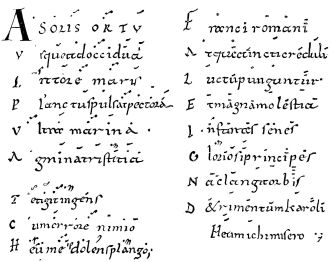 A SOLIS ORTU
Usque ad occidua
Littore maris
Planctus pulsat pectora
Ultra marina
Agmina tristitia
Tetigit ingens
Cum errore nimio
Heu me dolens plango;
Franci romani
Atque cuncti creduli
Luctu punguntur
Et magna molestia
Infantes senes
Gloriosi principes
Nā clangit orbis
D&rimentum karoli
Heu michi misero ;